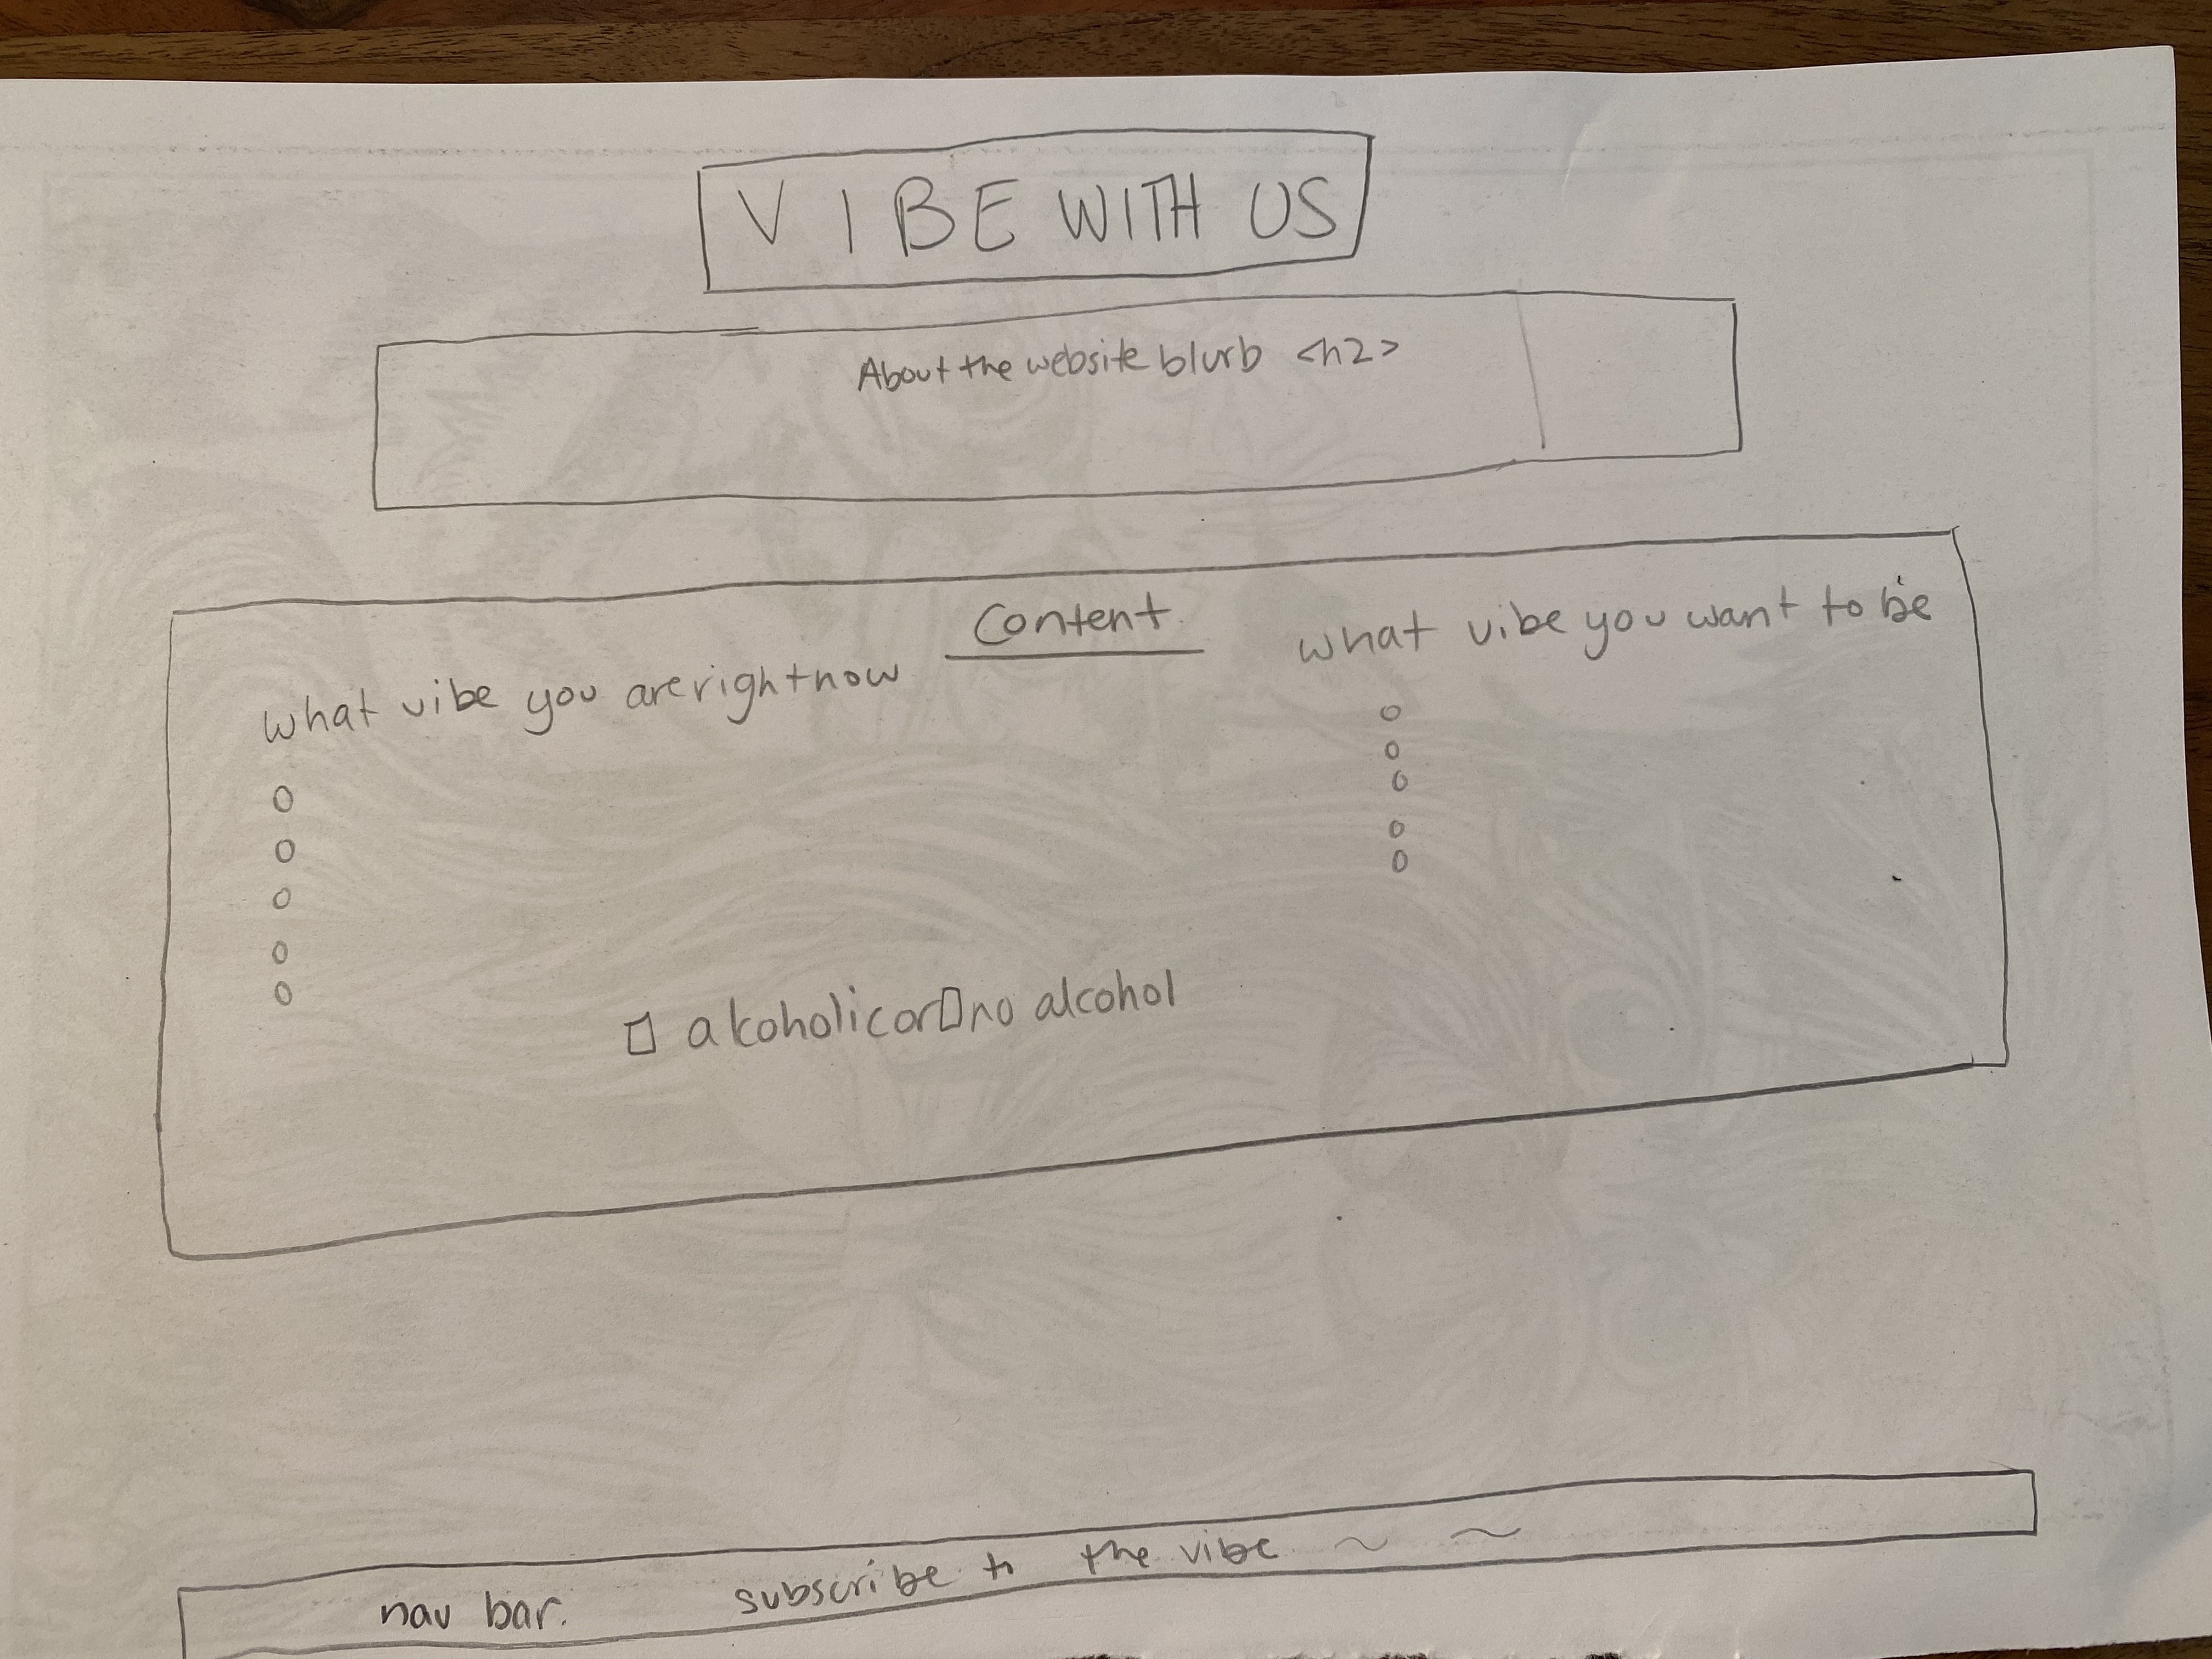 VIBE WITH US
About the website blurb <h2>
Content
what vibe you are right now
what vibe you want to be
alcoholic or no alcohol
nav bar. subscribe to the vibe ~ ~